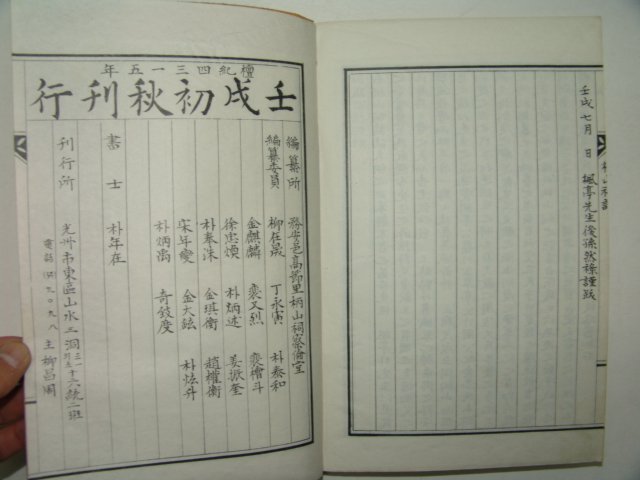 壬戌七月 日 楓亭先生後孫然稶謹跋
檀紀四三一五年
壬戌初秋刊行
編纂所 務安邑高節里柄山祠齋備室
編纂委員 柳在晟 丁永寅 朴泰和
金麒麟 裵又烈 裵檜斗
徐忠煥 朴炳述 姜振奎
朴奉洙 金琪衡 趙權衡
宋年燮 金大鉉 朴炫升
朴炳禹 奇鼓度
書士 朴年在
刊行所 光州市東區山水二洞 統二班
電話 九〇九八 主 柳昌周